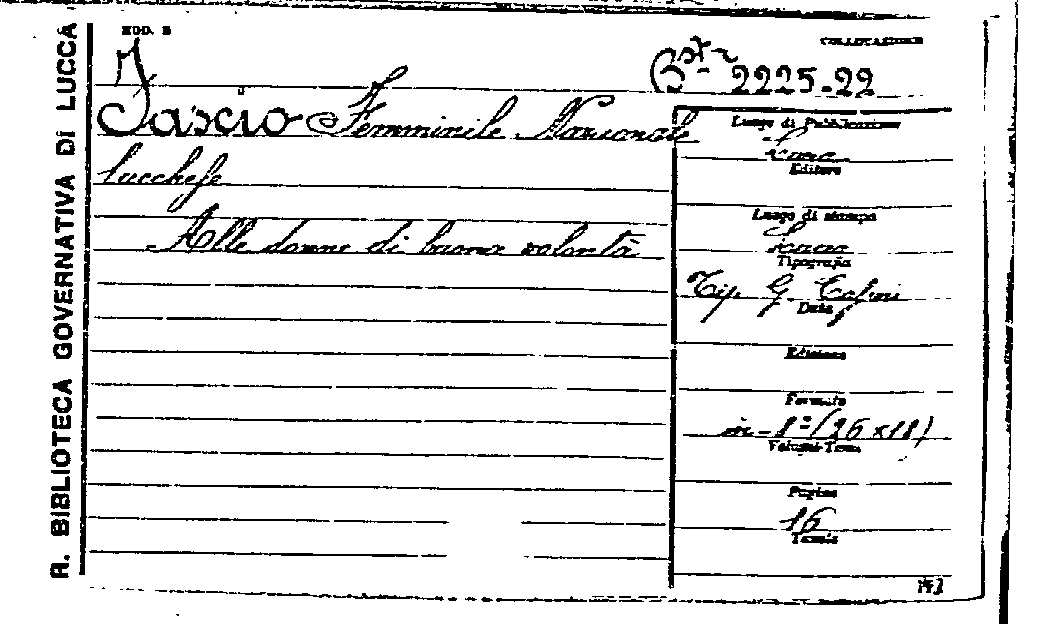 R. BIBLIOTECA GOVERNATIVA DI LUCCA
MOD. B
COLLOCAZIONE
2225.22
Fascio Femminile Nazionale
lucchese
Alle donne di buona volontà
Luogo di Pubblicazione
Lucca
Editore
Luogo di stampa
Lucca
Tipografia
Tip. G.
Data
Edizione
Formato
in-8º (26 x 18)
Volumi-Tomi
Pagine
16
Tavole